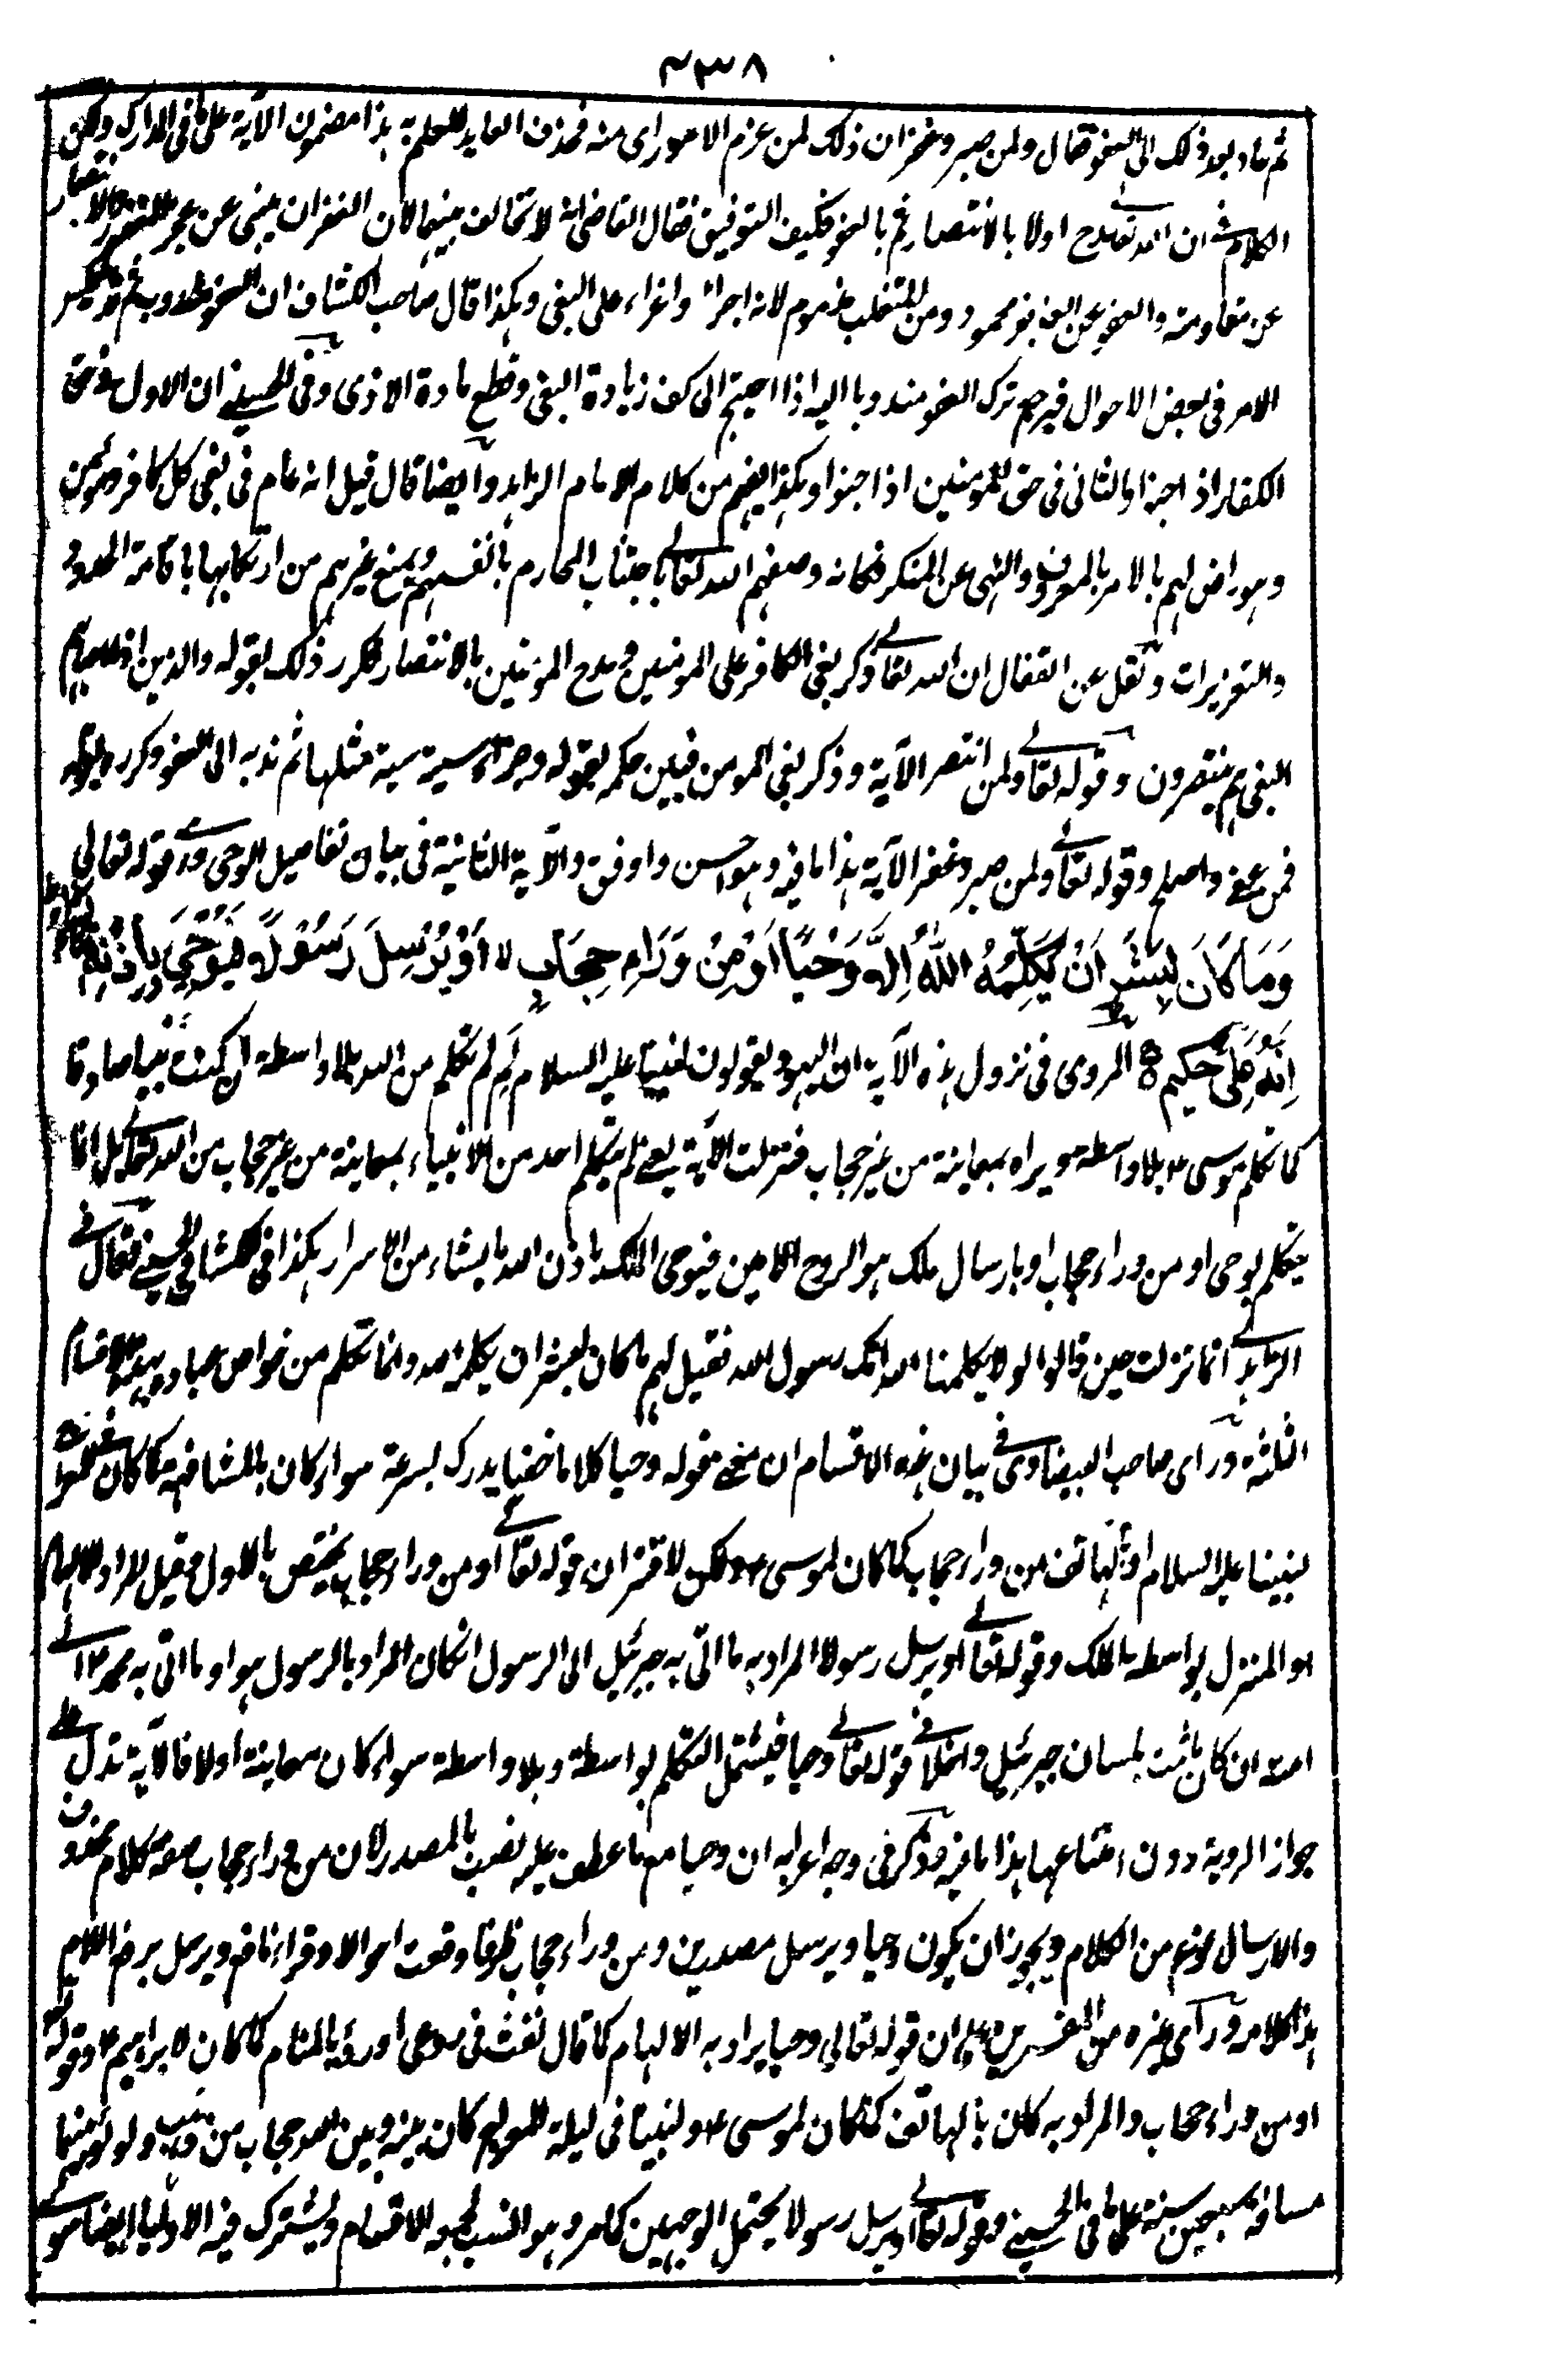 ٤٣٨
ثم عاد بعد ذلك الى العفو فقال ولمن صبر وغفر ان ذلك لمن عزم الامور اى منه فحذف العايد للعلم به هذا مضمون الآية على ما فى المدارك ولكن
الكلام فى ان الله تعالى مدح اولا بالانتصار ثم بالعفو فكيف التوفيق فقال القاضى انه لا تخالف بينهما لان الغفران ينبئ عن عجز المغفور والانتصار
عن مقاومته والعفو عن العاجز محمود ومن المتغلب مذموم لانه اجراء واغراء على البغى وهكذا قال صاحب الكشاف ان العفو مندوب ثم قد ينعكس
الامر فى بعض الاحوال فيرجع ترك العفو مندوبا اليه اذا احتيج الى كف زيادة البغى وقطع مادة الاذى وفى الحسينى ان الاول فى حق
الكفار اذ اجنوا والثانى فى حق المومنين اذا جنوا وهكذا يفهم من كلام الامام الزاهد وايضا قال قيل انه عام فى بغى كل كافر ومومن
وهو راض لهم بالامر بالمعروف والنهى عن المنكر فكانه وصفهم الله تعالى باجتناب المحارم بانفسهم وبمنع غيرهم من ارتكابها باقامة الحدود
والتعزيرات ونقل عن القفال ان الله تعالى ذكر بغى الكافر على المومنين ومدح المومنين بالانتصار فكرر ذلك بقوله والذين اذا اصابهم
البغى هم ينتصرون وقوله تعالى ولمن انتصر الآية وذكر بغى المومن فبين حكمه بقوله وجزاء سيئة سيئة مثلها ثم ندبه الى العفو وكرره بقوله
فمن عفى واصلح وقوله تعالى ولمن صبر وغفر الآية هذا ما فيه وهو احسن واوفق والآية الثانية فى بيان تفاصيل الوحى وهى قوله تعالى
وَمَا كَانَ لِبَشَرٍ اَنْ يُّكَلِّمَهُ اللّٰهُ اِلَّا وَحْيًا اَوْ مِنْ وَّرَآءِ حِجَابٍ لا اَوْ يُرْسِلَ رَسُوْلًا فَيُوْحِيَ بِاِذْنِهٖ مَا يَشَآءُ
اِنَّهٗ عَلِيٌّ حَكِيْمٌ المروى فى نزول هذه الآية ان اليهود يقولون لنبينا عليه السلام لم لم تكلم من الله بلا واسطة ان كنت نبيا صادقا
كما تكلم موسى ع بلا واسطة ويراه بمعاينة من غير حجاب فنزلت الآية يعنى لم يتكلم احد من الانبياء بمعاينة من غير حجاب من الله تعالى بل انما
يتكلم بوحى او من وراء حجاب او بارسال ملك هو الروح الامين فيوحى الملك باذن الله ما يشاء من الاسرار هكذا فى الكشاف والحسينى فقال فى
الزاهدى انما نزلت حين قالوا لولا يكلمنا الله انك رسول الله فقيل لهم ما كان لبشر ان يكلمه الله وانما تكلم من خواص عباده بهذه الاقسام
الثلثة وراى صاحب البيضاوى فى بيان هذه الاقسام ان معنى قوله وحيا كلاما خفيا يدرك بسرعة سواء كان بالمشافهة كما كان
لنبينا عليه السلام او بالهاتف من وراء حجاب كما كان لموسى ع ولكن لاقتران قوله تعالى او من وراء حجاب يختص بالاول وقيل المراد الالهام
او المنزل بواسطة الملك وقوله تعالى او يرسل رسولا المراد به ما اتى به جبرئيل الى الرسول ان كان المراد بالرسول هو او ما اتى به محمد ع الى
امته ان كان ما ثبت بلسان جبرئيل داخلا فى قوله تعالى وحيا فيشتمل التكلم بواسطة وبلا واسطة سواء كان معاينة اولا فالآية تدل على
جواز الروية دون امتناعها هذا ما فيه وذكر فى وجه اعرابه ان وحيا مع ما عطف عليه نصب بالمصدر لان من وراء حجاب صفة كلام محذوف
والارسال نوع من الكلام ويجوز ان يكون وحيا ويرسل مصدرين ومن وراء حجاب ظرفا وقعت احوالا وقراء نافع ويرسل برفع اللام
هذا كلامه وراى غيره من المفسرين على ان قوله تعالى وحيا يراد به الالهام كما قال نفث فى روعى او رؤية المنام كما كان لابراهيم ع وقوله
او من وراء حجاب والمراد به كان بالهاتف كما كان لموسى ع ولنبينا فى ليلة المعراج كان بينه وبين الله حجاب من ذهب ولولو بينهما
مسافة سبعين سنة على ما فى الحسينى وقوله تعالى او يرسل رسولا يحتمل الوجهين كما مر وهو انسب لجمع الاقسام ويشترك فيه الاولياء ايضا سوى